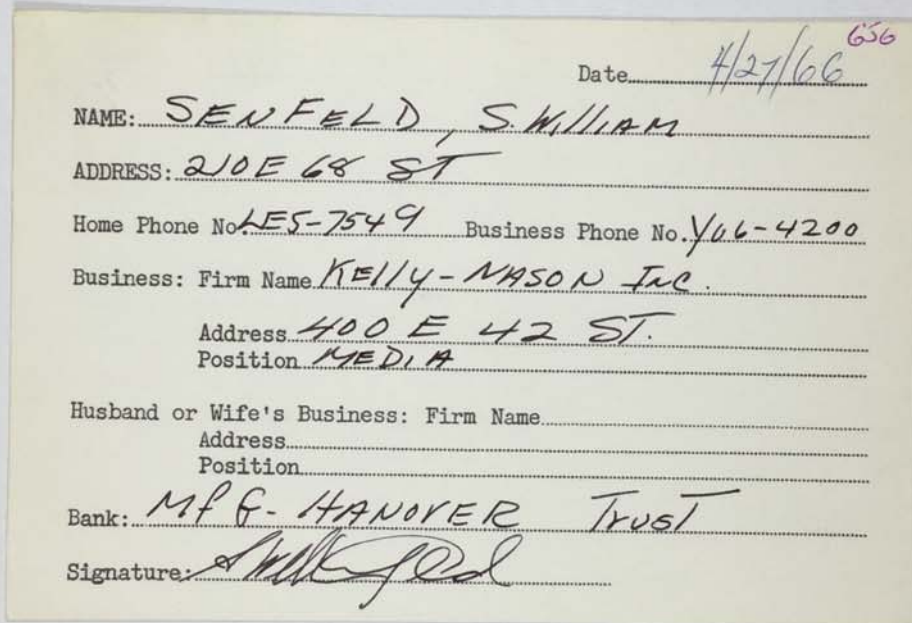 656
Date 4/27/66
NAME: SENFELD, S. William
ADDRESS: 210 E 68 ST
Home Phone No. LE5-7549 Business Phone No. YU6-4200
Business: Firm Name KElly-NASON Inc.
Address 400 E 42 ST.
Position MEDIA
Husband or Wife's Business: Firm Name
Address
Position
Bank: MfG-HANOVER TrusT
Signature: